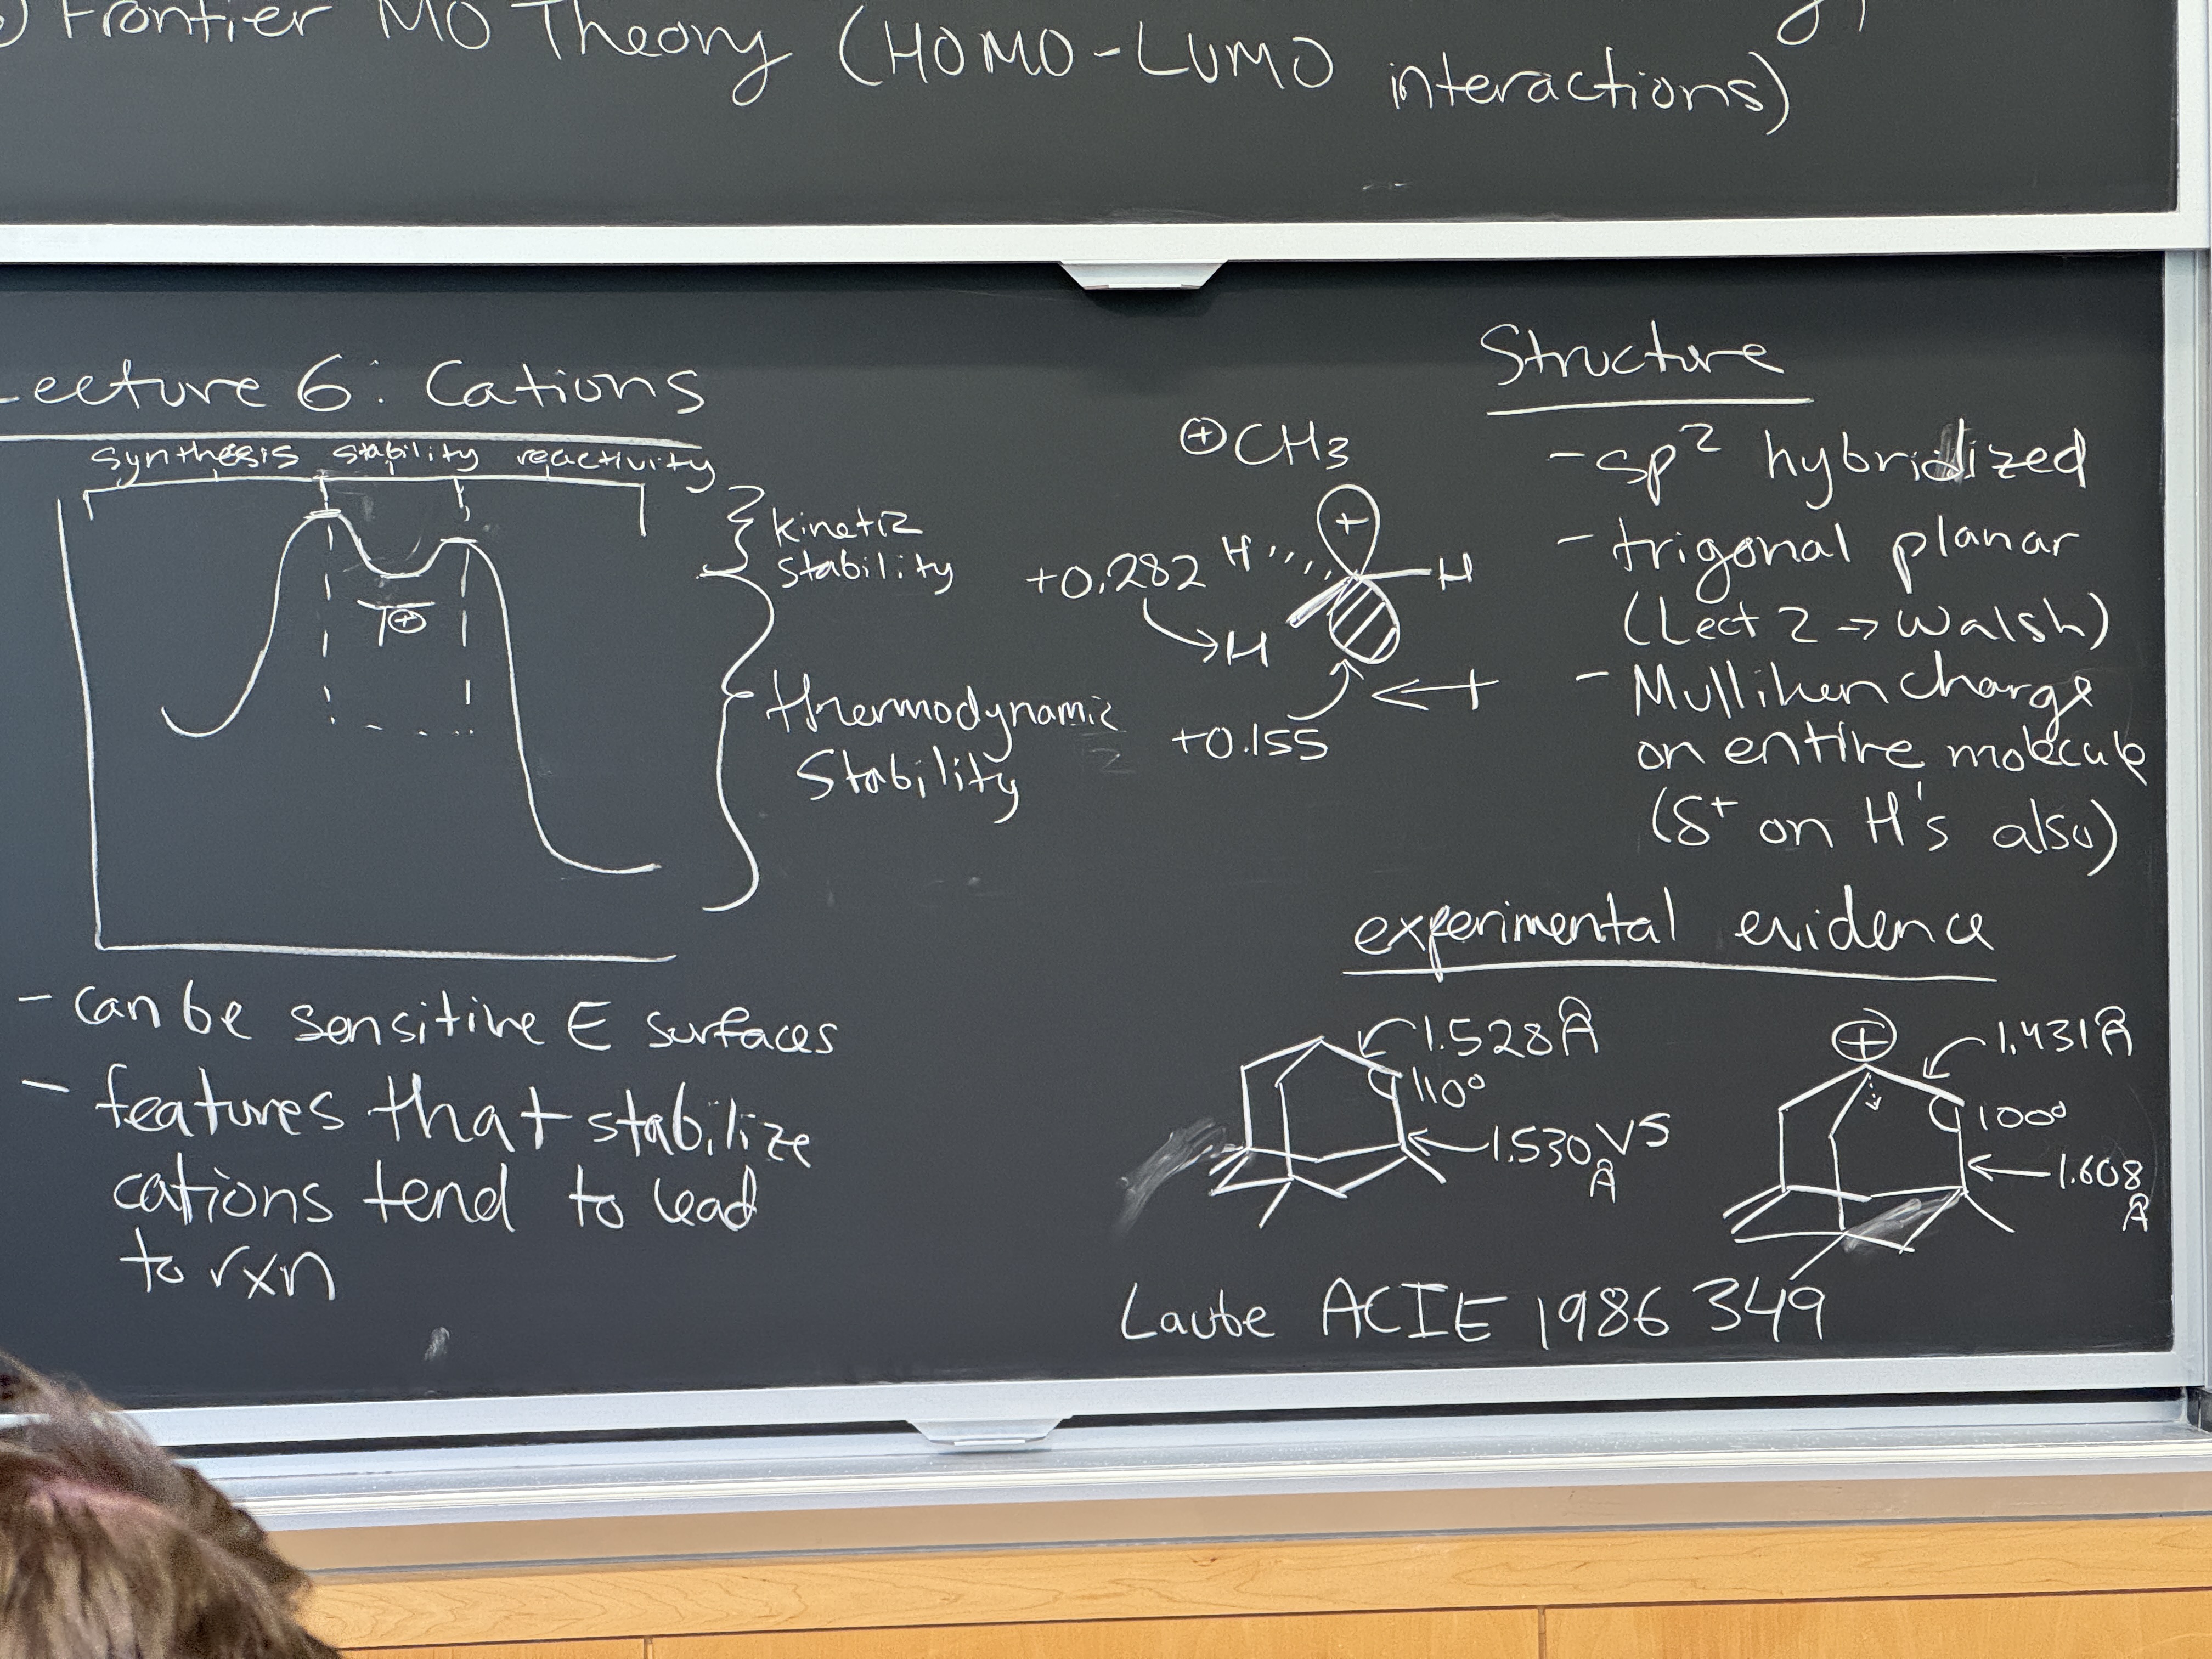 Frontier MO Theory (HOMO-LUMO
interactions)
Lecture 6: Cations
synthesis stability reactivity
kinetic
stability
thermodynamic
Stability
⊕
- can be sensitive E surfaces
- features that stabilize
cations tend to lead
to rxn
Structure
⊕CH3
- sp² hybridized
- trigonal planar
(Lect 2 → Walsh)
- Mulliken charge
on entire molecule
(δ+ on H's also)
+
+0.282 H
H
H
+0.155
experimental evidence
1.528Å
110°
1.530
Å
vs
⊕
1.431Å
100°
1.608
Å
Laube ACIE 1986 349